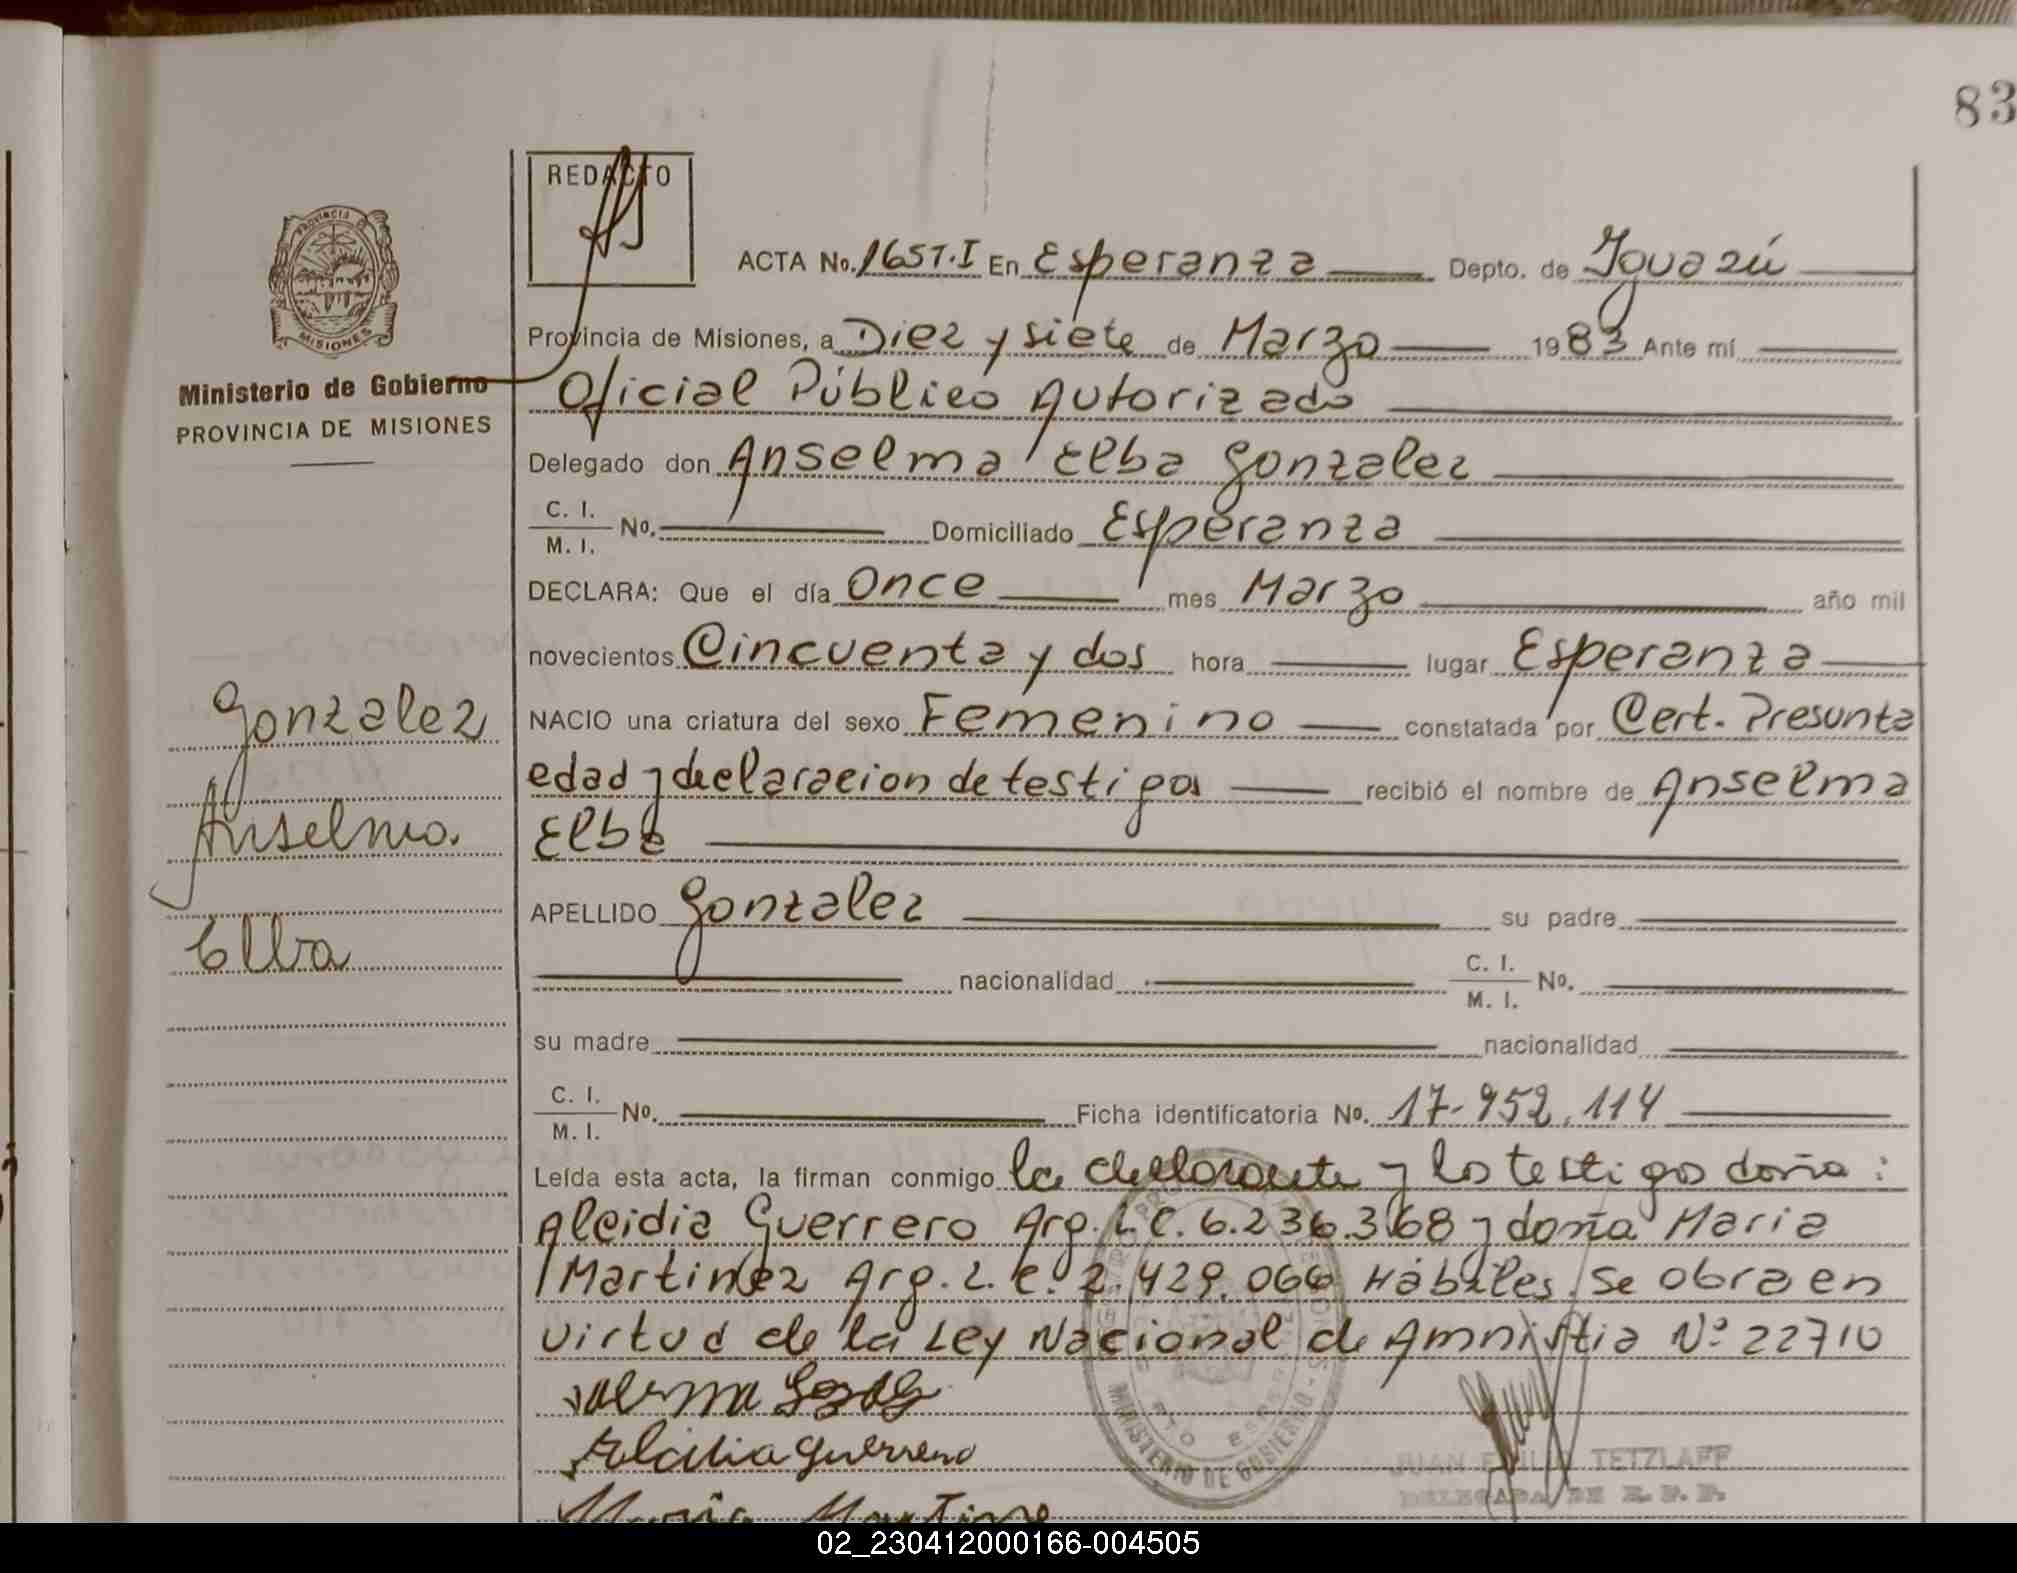 83
REDACTO
ACTA No. 165T.I En Esperanza Depto. de Iguazú
PROVINCIA DE
MISIONES
Provincia de Misiones, a Diez y siete de Marzo 1983 Ante mí
Ministerio de Gobierno
PROVINCIA DE MISIONES
Oficial Público Autorizado
Delegado don Anselma Elba Gonzalez
C. I.
M. I. No. Domiciliado Esperanza
DECLARA: Que el día Once mes Marzo año mil
novecientos Cincuenta y dos hora lugar Esperanza
Gonzalez
Anselma
Elba
NACIO una criatura del sexo Femenino constatada por Cert. Presunta
edad y declaracion de testigos recibió el nombre de Anselma
Elba
APELLIDO Gonzalez su padre
nacionalidad C. I. M. I. No.
su madre nacionalidad
C. I.
M. I. No. Ficha identificatoria No. 17-952.114
Leída esta acta, la firman conmigo la declarante y los testigos doña:
Alcidia Guerrero Arg. L.C. 6.236.368 y doña Maria
Martinez Arg. L.C. 2.429.066 Hábiles. Se obra en
virtud de la Ley Nacional de Amnistia Nº 22710
Alcidia Guerrero
Maria Martine
MINISTERIO DE GOBIERNO
JUAN EMILIO TETZLAFF
DELEGADA DE R. P. P.
02_230412000166-004505